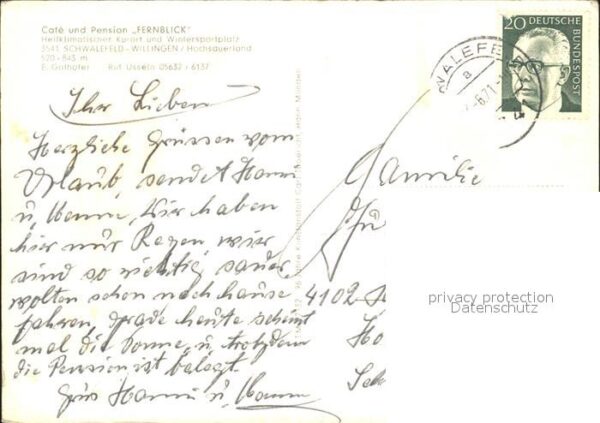 Café und Pension „FERNBLICK"
Heilklimatischer Kurort und Wintersportplatz
3541 SCHWALEFELD-WILLINGEN / Hochsauerland
570 - 845 m
E. Gathöfer Ruf Usseln 05632 - 6137
20 DEUTSCHE
BUNDESPOST
WALEFE
a
6.71
Ihr Lieben
Herzliche Grüssen vom
Urlaub, sendet Hanni
u,
Wir haben
hier nur Regen, wier
sind so richtig sauer
wolten schon nach hause
fahren, grade heute scheint
mal die Sonne, u, trotzdem
die Pension ist belegt.
Grus Hanni u,
Familie
4102
privacy protection
Datenschutz